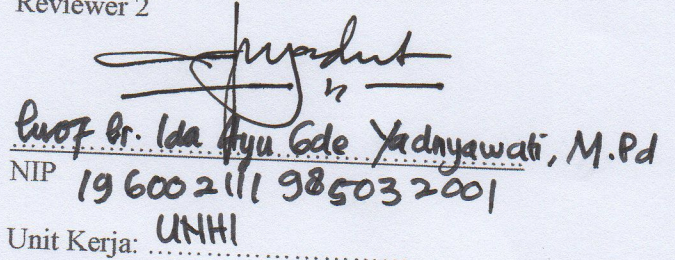 Reviewer 2
Prof Dr. Ida Ayu Gde Yadnyawati, M.Pd
NIP 196002111985032001
Unit Kerja: UNHI